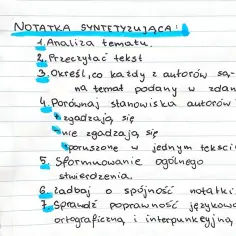 NOTATKA SYNTETYZUJĄCA:
1. Analiza tematu.
2. Przeczytać tekst
3. Określ, co każdy z autorów są-
na temat podany w zdan
4. Porównaj stanowiska autorów
zgadzają się
nie zgadzają się
poruszone w jednym tekści
5. Sformuowanie ogólnego
stwierdzenia.
6. Zadbaj o spójność notatki
7. Sprawdź poprawność językow
ortograficzną i interpunkcyjną